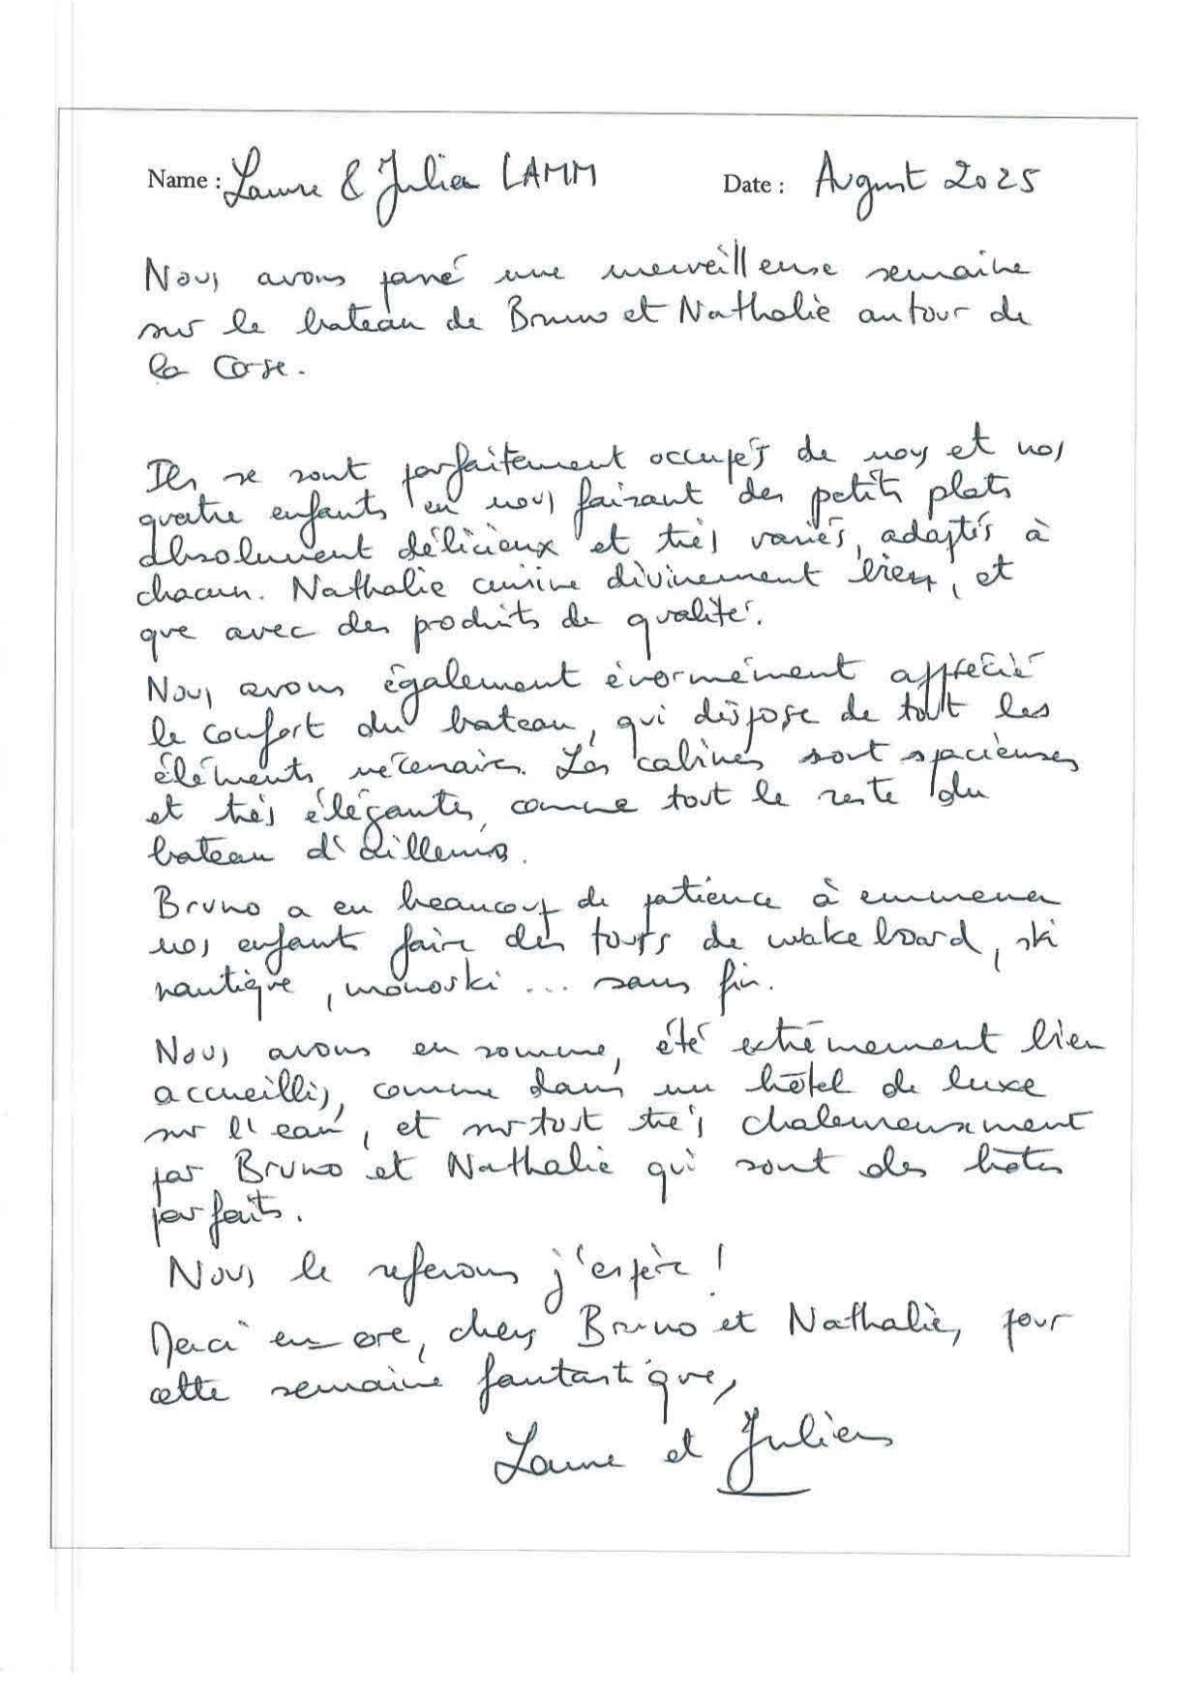 Name : Laure & Julien LAMM Date : August 2025
Nous avons passé une merveilleuse semaine
sur le bateau de Bruno et Nathalie autour de
la Corse.
Ils se sont parfaitement occupés de nous et nos
quatre enfants en nous faisant des petits plats
absolument délicieux et très variés, adaptés à
chacun. Nathalie cuisine divinement bien, et
que avec des produits de qualité.
Nous avons également énormément apprécié
le confort du bateau, qui dispose de tout les
éléments nécessaires. Les cabines sont spacieuses
et très élégantes, comme tout le reste du
bateau d'ailleurs.
Bruno a eu beaucoup de patience à emmener
nos enfants faire des tours de wakeboard, ski
nautique, monoski ... sans fin.
Nous avons en somme, été extrêmement bien
accueillis, comme dans un hôtel de luxe
sur l'eau, et surtout très chaleureusement
par Bruno et Nathalie qui sont des hôtes
parfaits.
Nous le referons j'espère !
Merci encore, chers Bruno et Nathalie, pour
cette semaine fantastique,
Laure et Julien